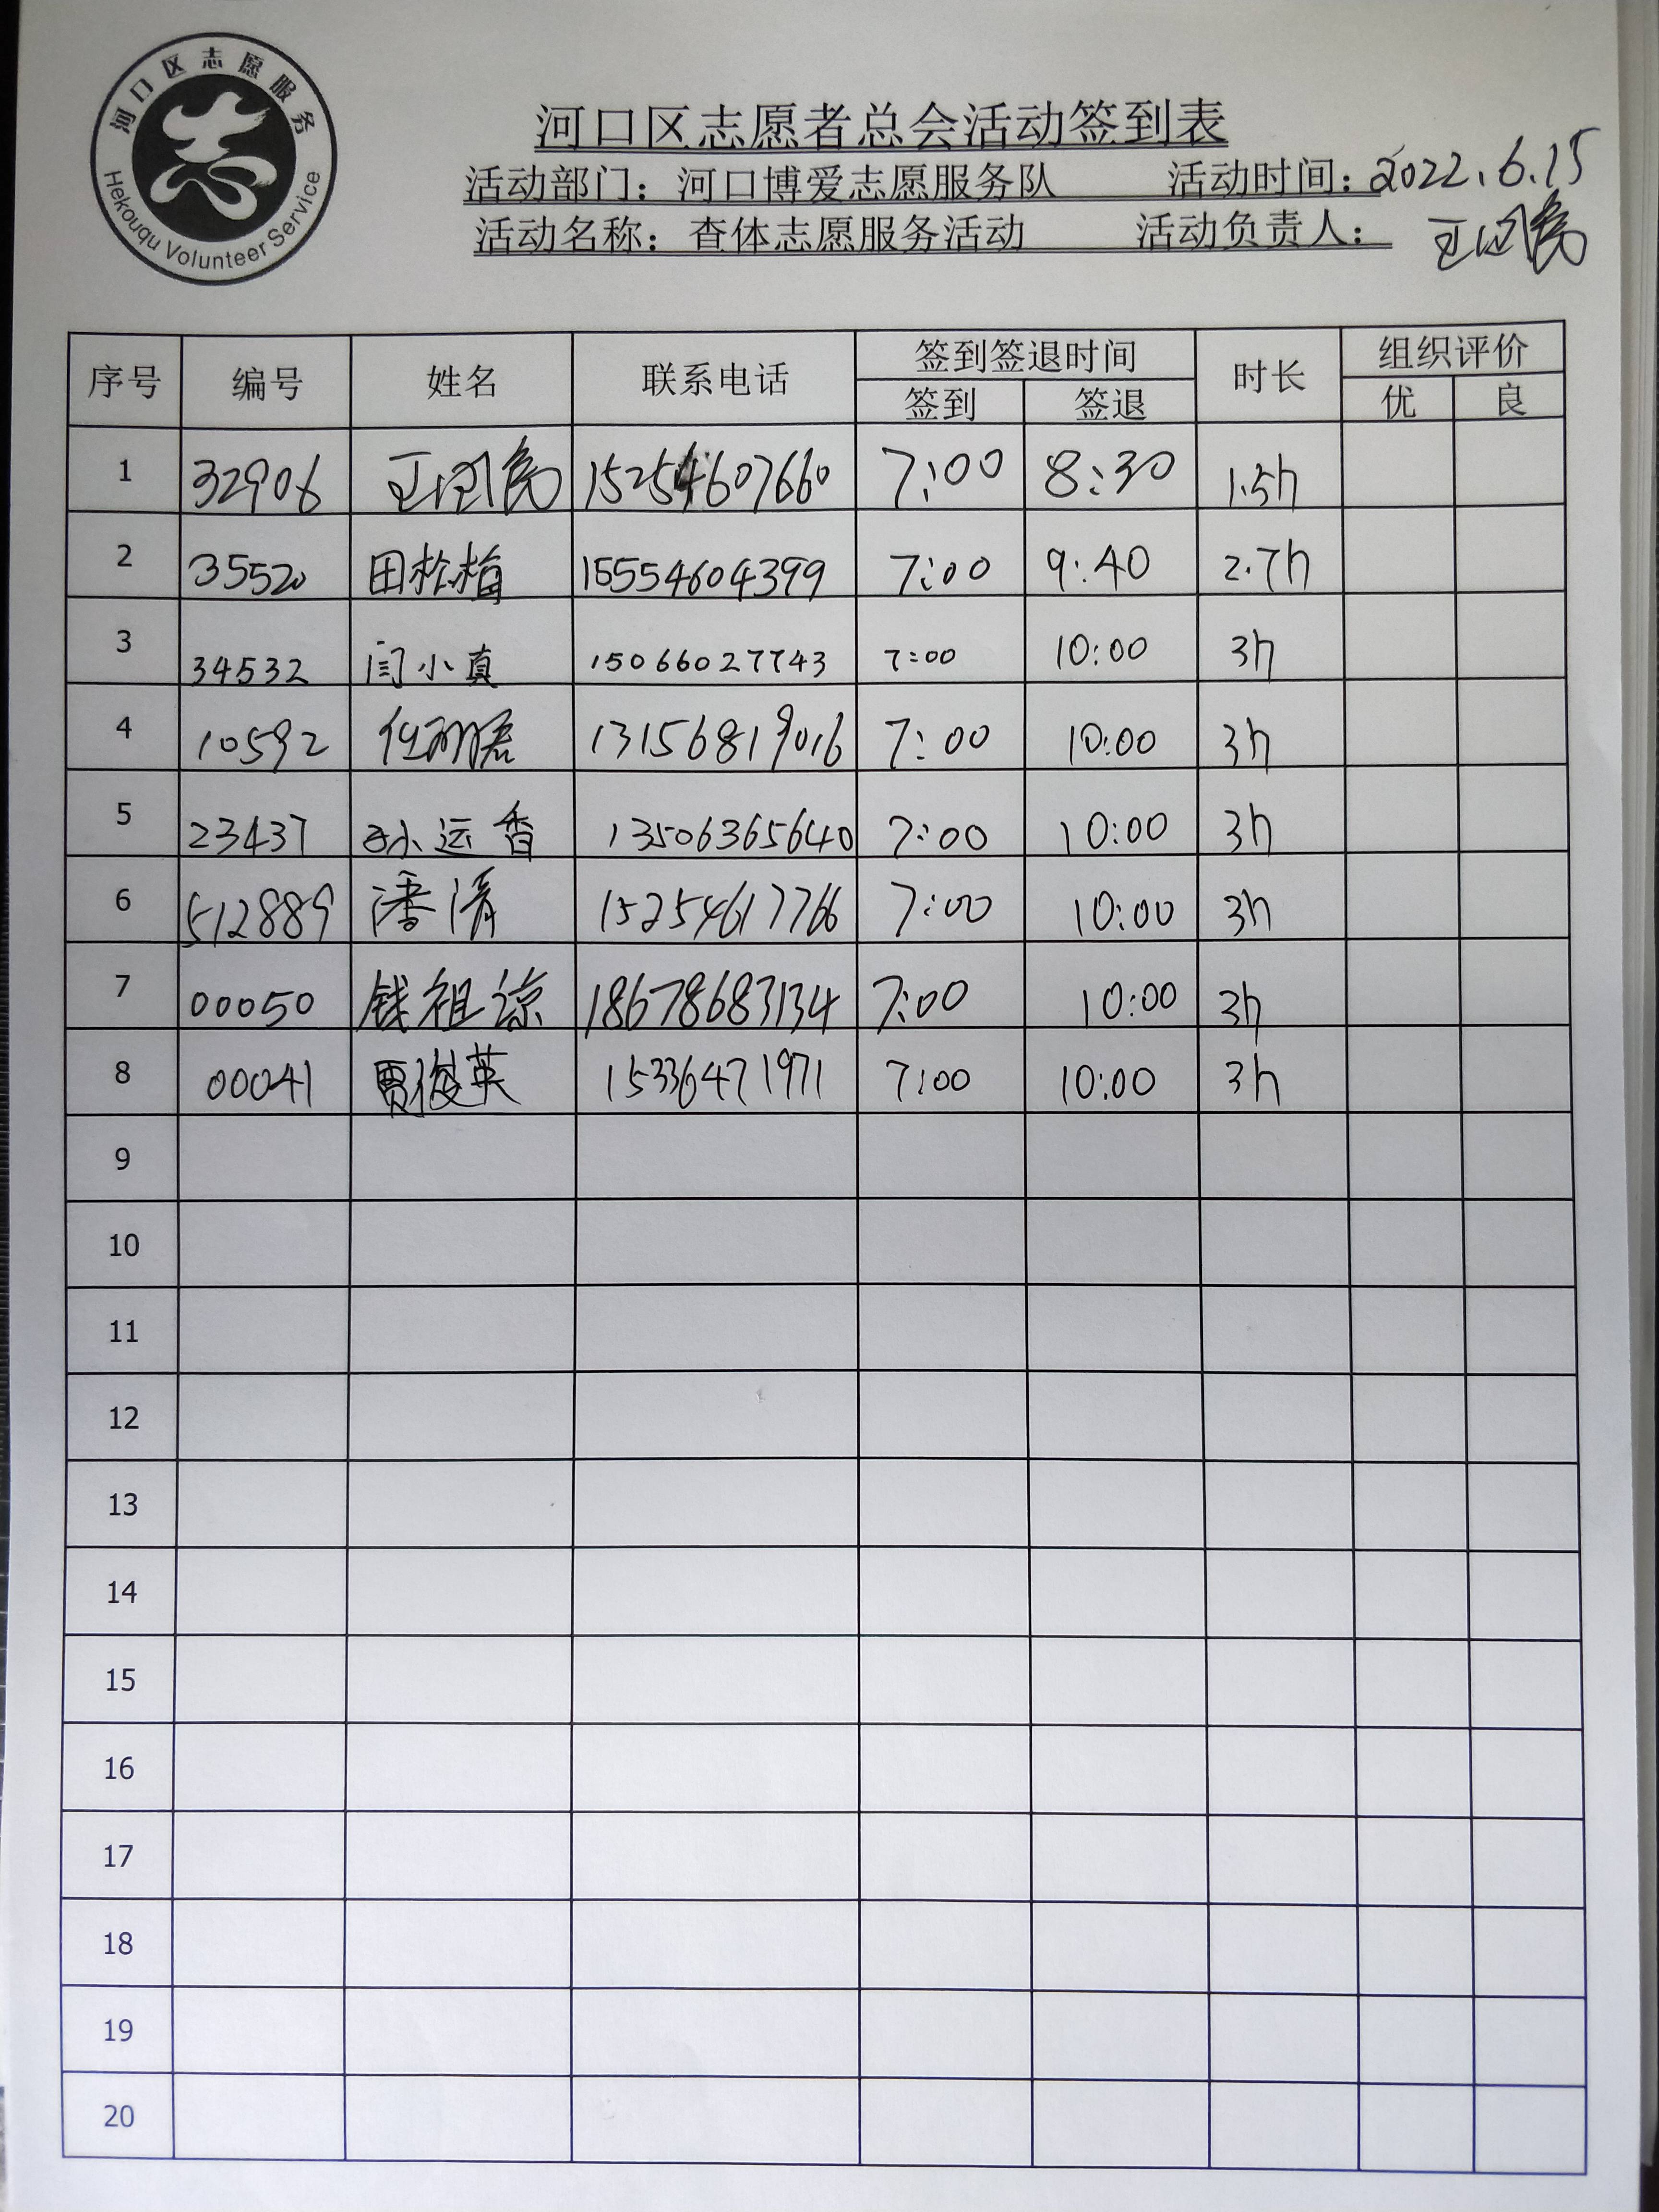 河口区志愿服务
Hekouqu Volunteer Service
河口区志愿者总会活动签到表
活动部门：河口博爱志愿服务队 活动时间：2022.6.15
活动名称：查体志愿服务活动 活动负责人：
序号 编号 姓名 联系电话 签到签退时间 时长 组织评价
签到 签退 优 良
1 32906 15254607660 7:00 8:30 1.5h
2 35520 田松梅 15554604399 7:00 9:40 2.7h
3 34532 闫小真 15066027743 7:00 10:00 3h
4 10592 13156819016 7:00 10:00 3h
5 23437 孙运香 13506365640 7:00 10:00 3h
6 512889 潘清 15254617766 7:00 10:00 3h
7 00050 钱祖谅 18678683134 7:00 10:00 3h
8 00041 贾俊英 15336471971 7:00 10:00 3h
9
10
11
12
13
14
15
16
17
18
19
20